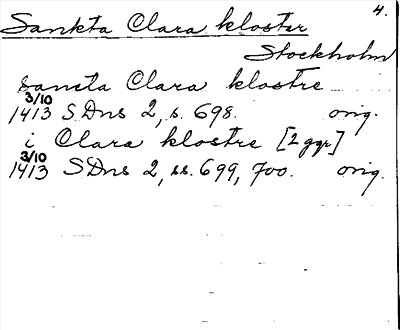 4.
Sankta Clara kloster
Stockholm
sancta Clara klostre
3/10
1413 SDns 2, s. 698. orig.
i Clara klostre [2 ggr]
3/10
1413 SDns 2, ss. 699, 700. orig.